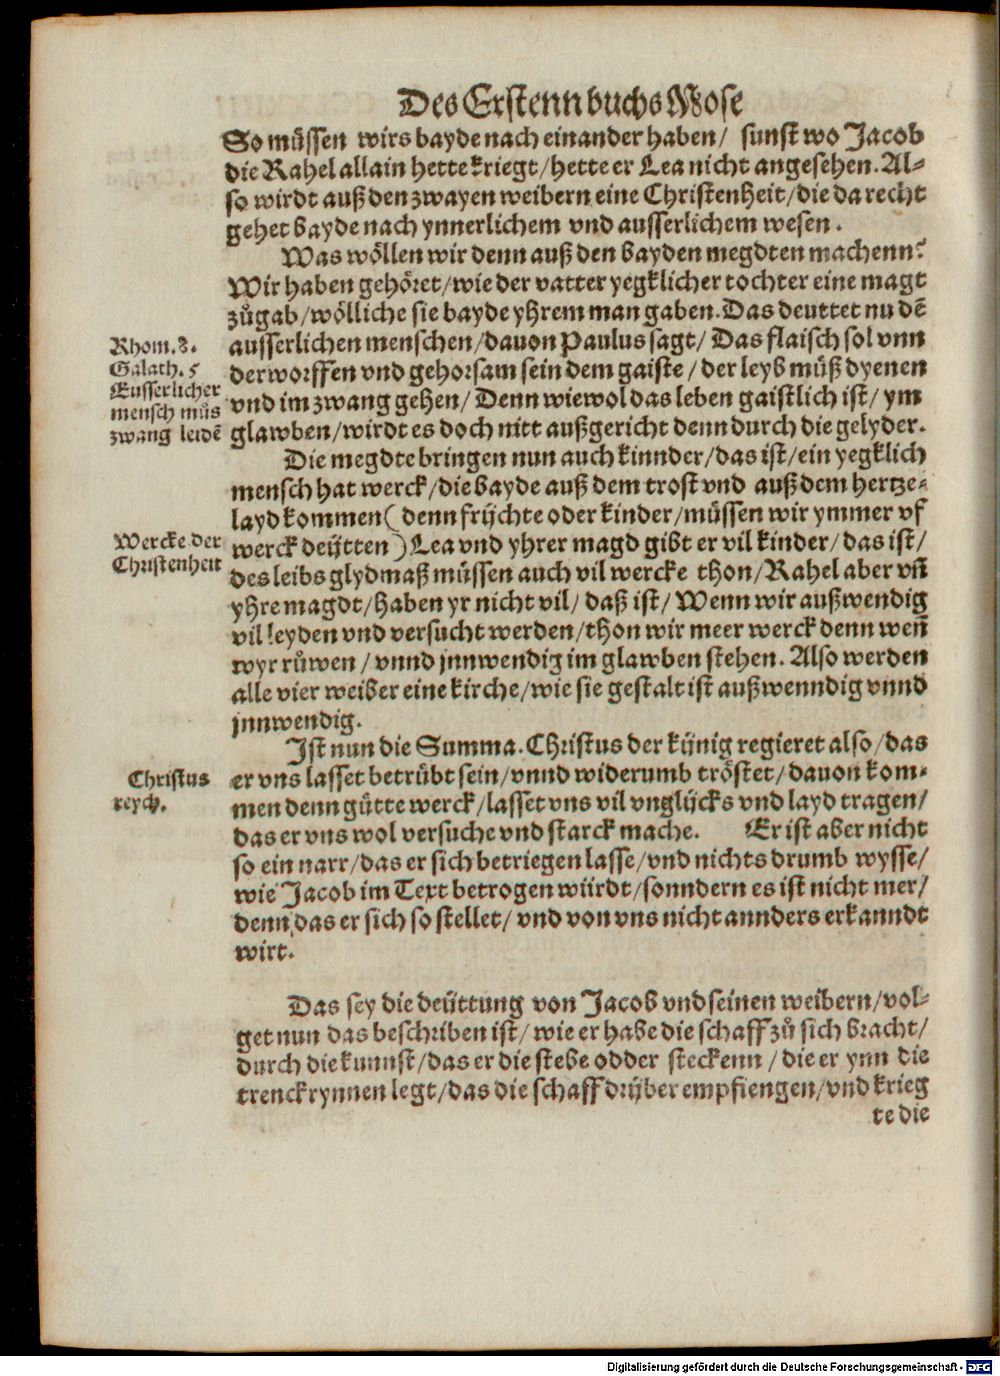 Des Erstenn buchs Mose
So müssen wirs bayde nach einander haben/ sunst wo Jacob
die Rahel allain hette kriegt/hette er Lea nicht angesehen. Al-
so wirdt auß den zwayen weibern eine Christenheit/die da recht
gehet bayde nach ynnerlichem vnd ausserlichem wesen.
Was wöllen wir denn auß den bayden megdten machenn?
Wir haben gehöret/wie der vatter yegklicher tochter eine magt
zůgab/wölliche sie bayde yhrem man gaben. Das deuttet nu dē
ausserlichen menschen/dauon Paulus sagt/ Das flaisch sol vnn
derworffen vnd gehorsam sein dem gaiste/ der leyb müß dyenen
vnd im zwang gehen/ Denn wiewol das leben gaistlich ist/ ym
glawben/wirdt es doch nitt außgericht denn durch die gelyder.
Rhom. 8.
Galath. 5
Eusserlicher
mensch můs
zwang leidē
Die megdte bringen nun auch kinnder/das ist/ein yegklich
mensch hat werck/die bayde auß dem trost vnd auß dem hertze-
layd kommen(denn frijchte oder kinder/müssen wir ymmer vf
werck deijtten)Lea vnd yhrer magd gibt er vil kinder/das ist/
des leibs glydmaß müssen auch vil wercke thon/Rahel aber vñ
yhre magdt/haben yr nicht vil/ daß ist/ Wenn wir außwendig
vil leyden vnd versucht werden/thon wir meer werck denn weñ
wyr růwen/ vnnd jnnwendig im glawben stehen. Also werden
alle vier weiber eine kirche/wie sie gestalt ist außwenndig vnnd
jnnwendig.
Wercke der
Christenheit
Jst nun die Summa. Christus der kijnig regieret also/das
er vns lasset betrübt sein/vnnd widerumb tröstet/dauon kom-
men denn gütte werck/lasset vns vil vnglijcks vnd layd tragen/
das er vns wol versuche vnd starck mache. Er ist aber nicht
so ein narr/das er sich betriegen lasse/vnd nichts drumb wysse/
wie Jacob im Text betrogen würdt/sonndern es ist nicht mer/
denn das er sich so stellet/ vnd von vns nicht annders erkanndt
wirt.
Christus
reych.
Das sey die deüttung von Jacob vnd seinen weibern/vol-
get nun das beschriben ist/ wie er habe die schaff zů sich bracht/
durch die kunnst/das er die stebe odder steckenn/ die er ynn die
trenckrynnen legt/das die schaff drijber empfiengen/vnd krieg
te die
Digitalisierung gefördert durch die Deutsche Forschungsgemeinschaft - DFG